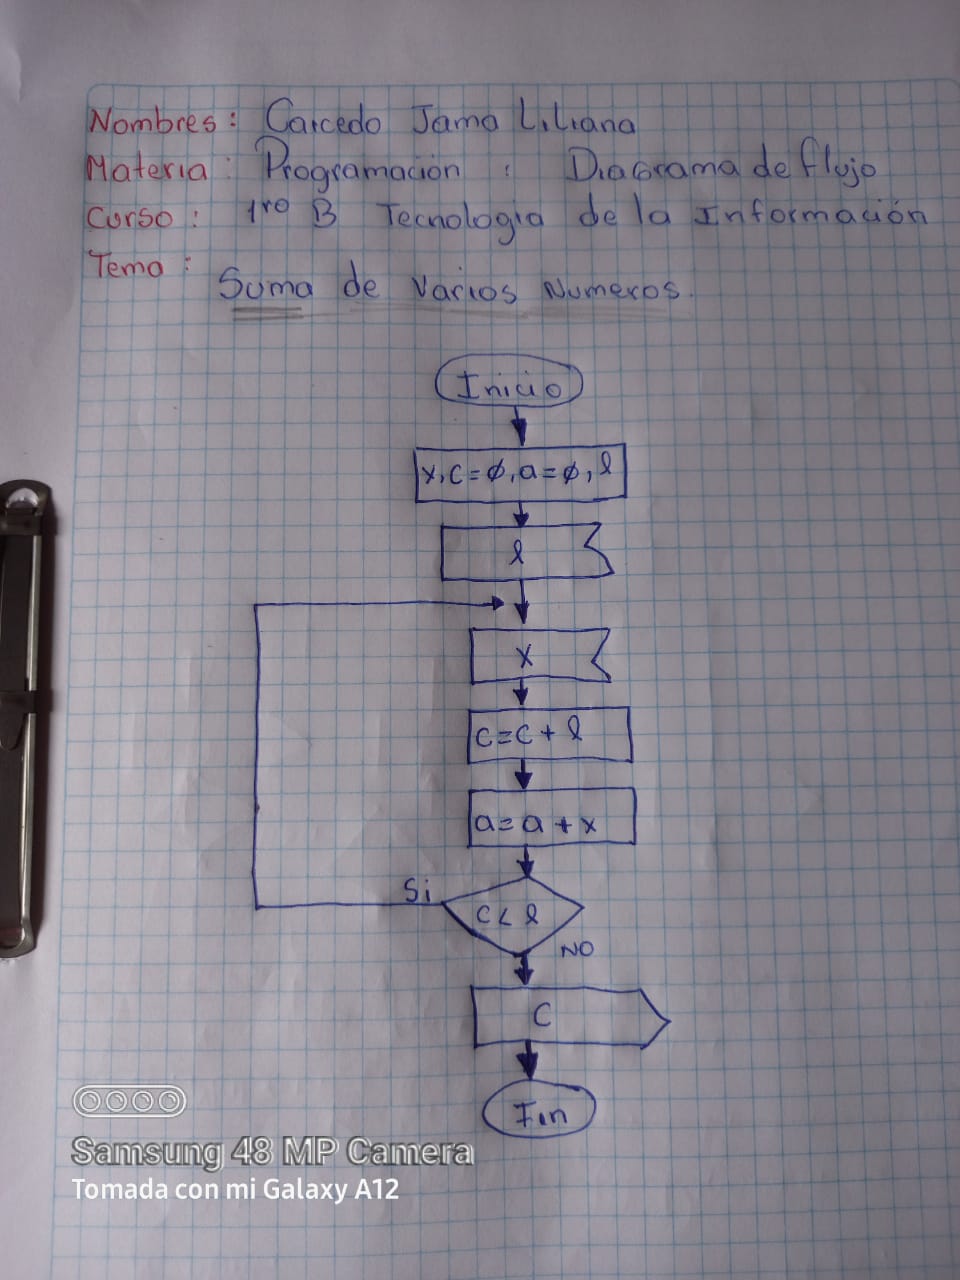 Nombres: Caicedo Jama Liliana
Materia: Programación : Diagrama de flujo
Curso: 1ro B Tecnologia de la Información
Tema: Suma de varios Numeros.
Inicio
x, c = ø, a = ø, l
l
x
c = c + l
a = a + x
Si
c < l
NO
C
Fin
Samsung 48 MP Camera
Tomada con mi Galaxy A12